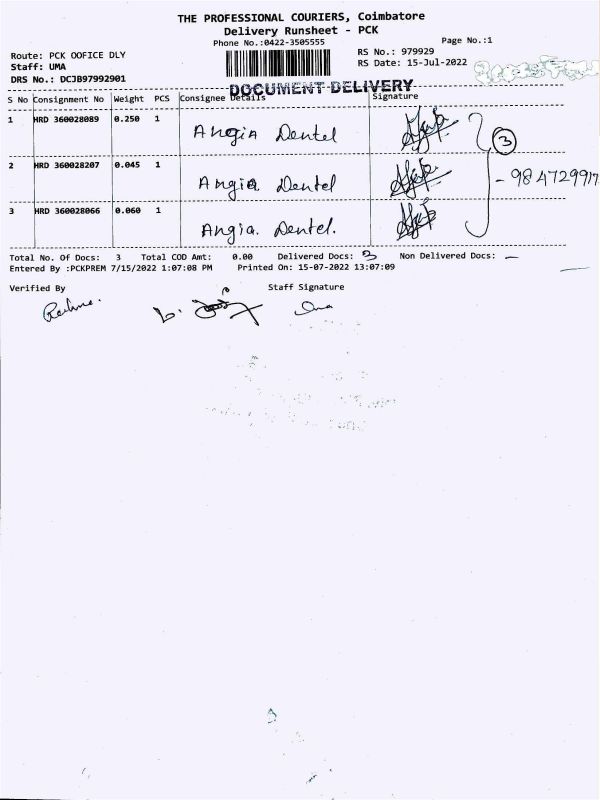 THE PROFESSIONAL COURIERS, Coimbatore
Delivery Runsheet - PCK
Phone No.:0422-3505555
Page No.:1
Route: PCK OOFICE DLY
RS No.: 979929
Staff: UMA
RS Date: 15-Jul-2022
DRS No.: DCJB97992901
DOCUMENT DELIVERY
S No Consignment No Weight PCS Consignee Details Signature
1 HRD 360028089 0.250 1 Angia Dentel
3
2 HRD 360028207 0.045 1 Angia Dentel
- 984729917
3 HRD 360028066 0.060 1 Angia. Dentel.
Total No. Of Docs: 3 Total COD Amt: 0.00 Delivered Docs: 3 Non Delivered Docs: —
Entered By :PCKPREM 7/15/2022 1:07:08 PM Printed On: 15-07-2022 13:07:09
Verified By Staff Signature
Uma